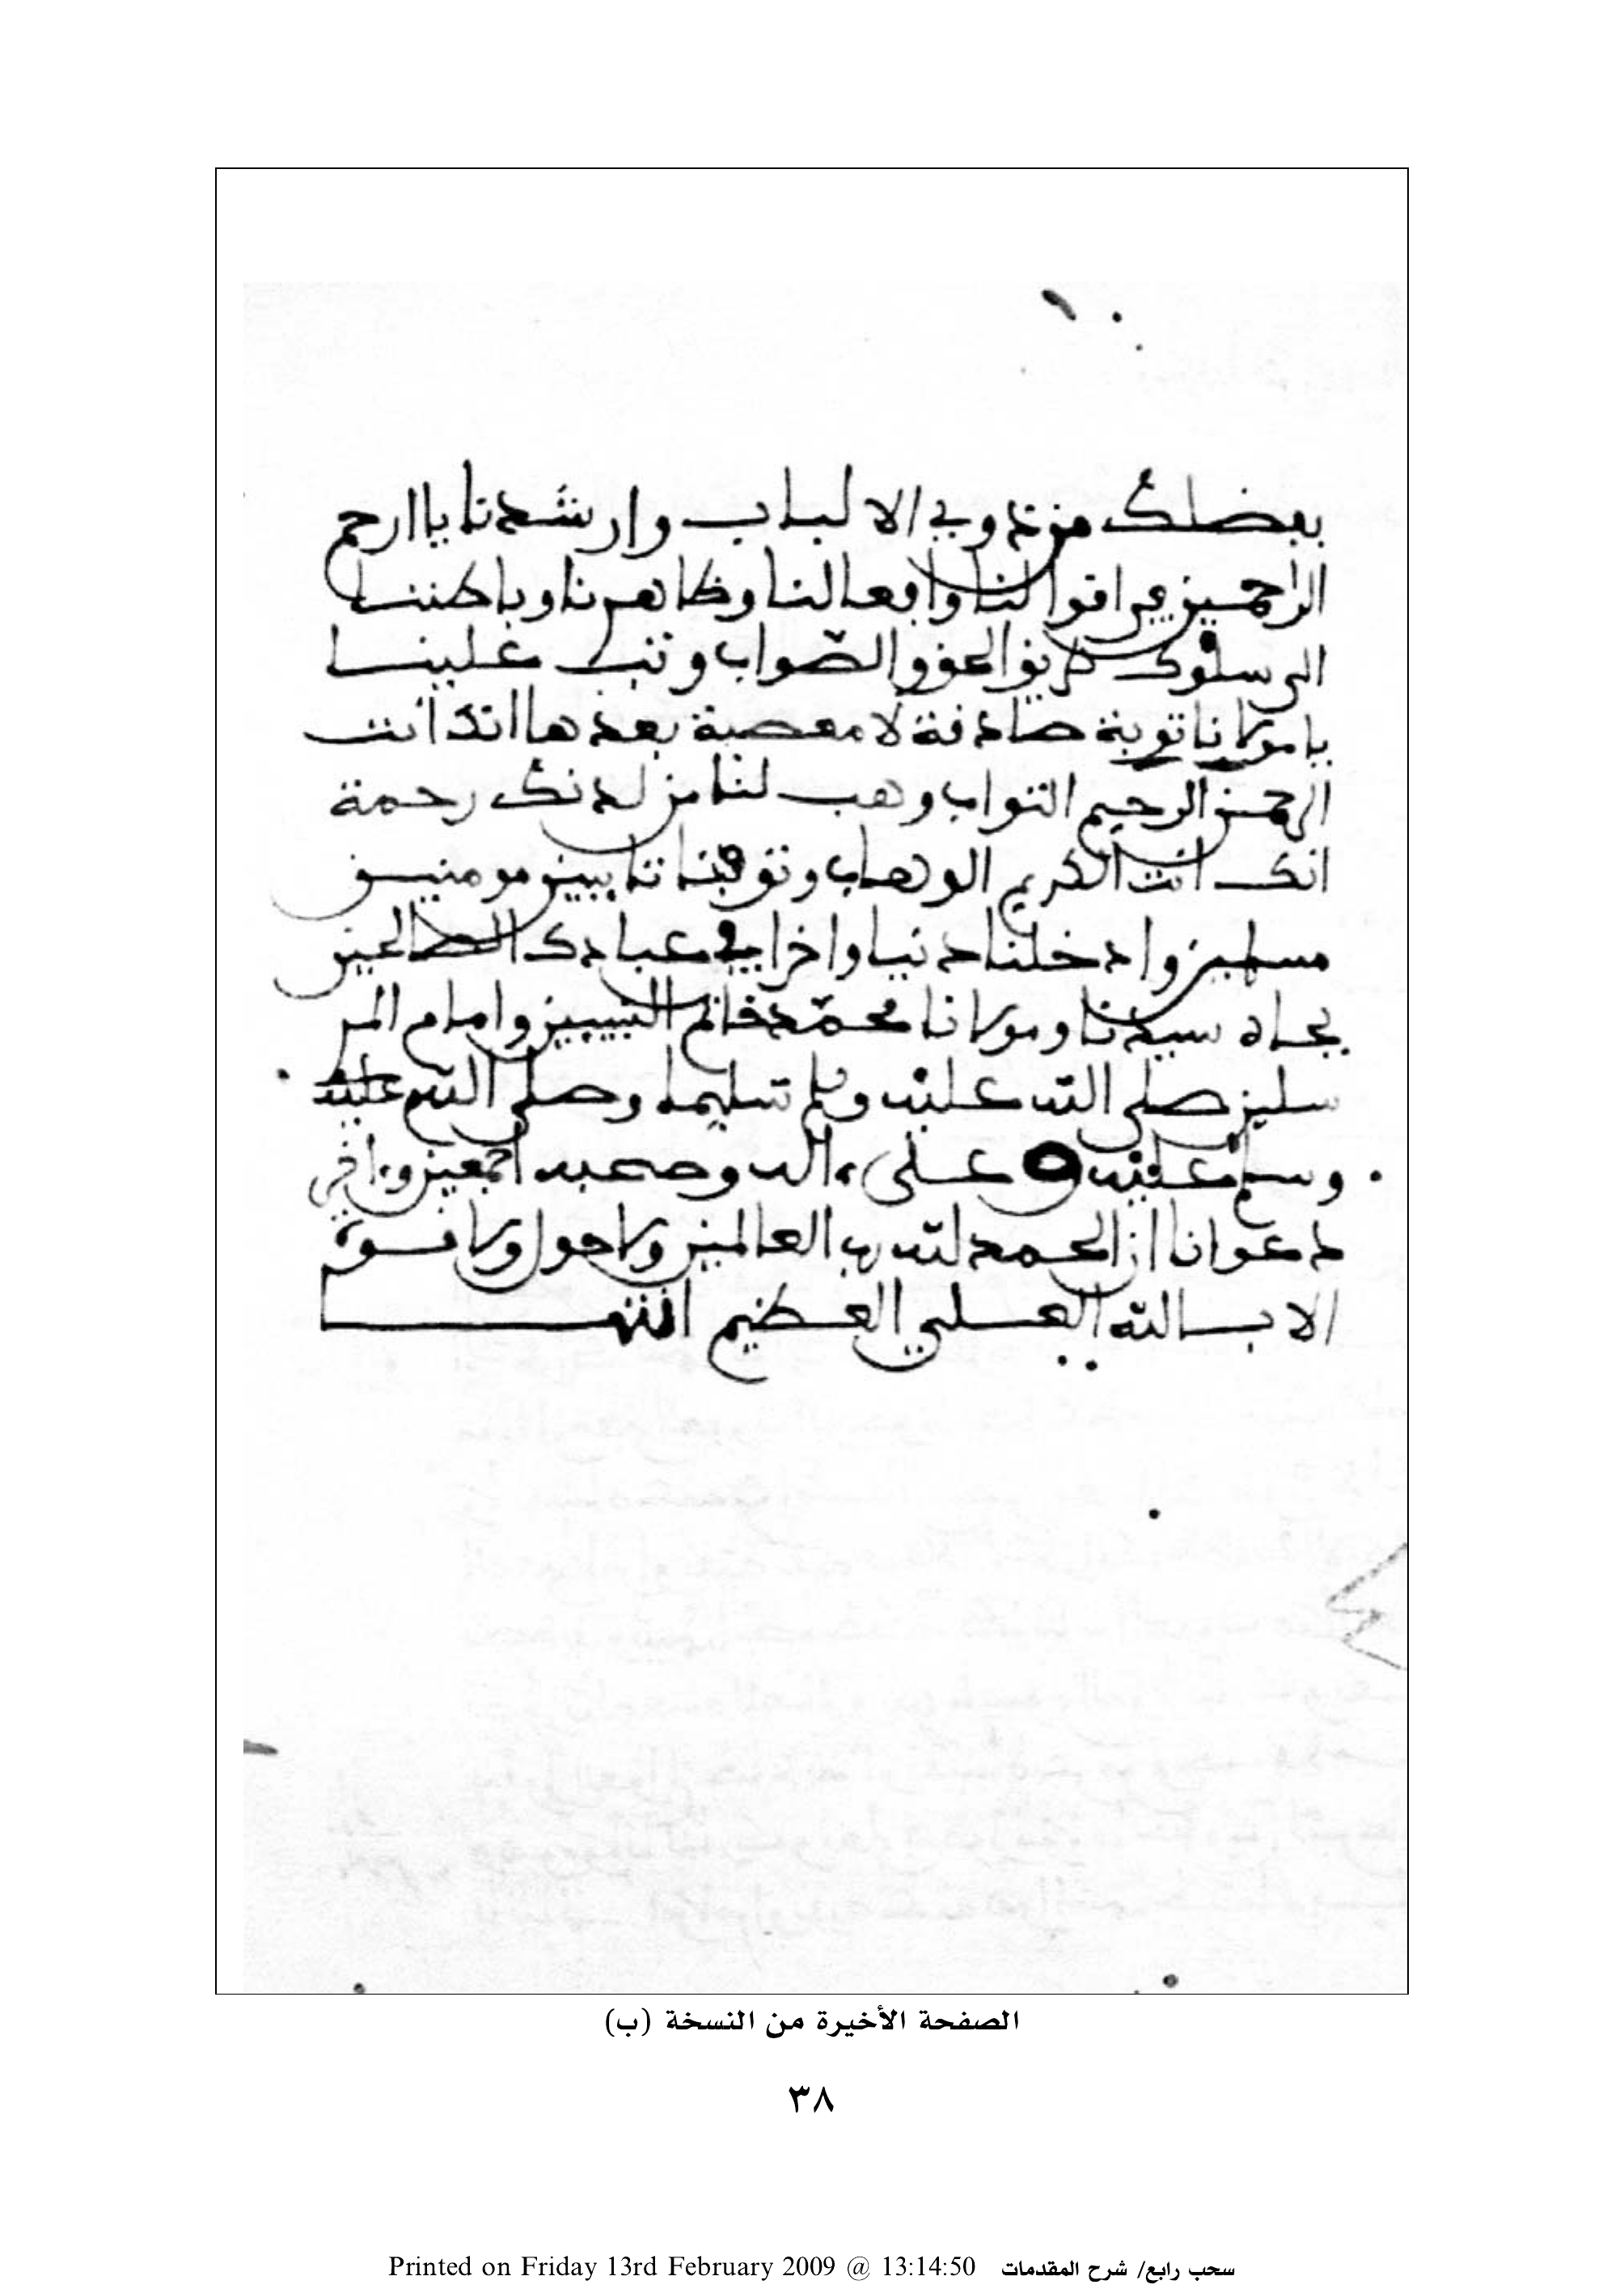 بفضلك من ذوي الالباب وارشدنا ياارحم
الراحمين في اقوالنا وافعالنا وظاهرنا وباطننا
الى سلوك طريق الحق والصواب وتب علينا
يا مولانا توبة صادقة لا معصية بعدها انك أنت
الرحمن الرحيم التواب وهب لنا من لدنك رحمة
انك انت الكريم الوهاب وتوفنا تايبين مومنين
مسلمين وادخلنا دنيا واخرا في عبادك الصالحين
بجاه سيدنا ومولانا محمّد خاتم النبيين وامام المر
سلين صلى اللّه عليه وسلم تسليما وصلى اللّه عليه
وسلم عليه وعلى ءاله وصحبه أجمعين وءاخر
دعوانا ان الحمد للّه رب العالمين ولا حول ولا قوة
الا باللّه العلي العظيم انتهـــا
الصفحة الأخيرة من النسخة (ب)
٣٨
Printed on Friday 13rd February 2009 @ 13:14:50 سحب رابع/ شرح المقدمات